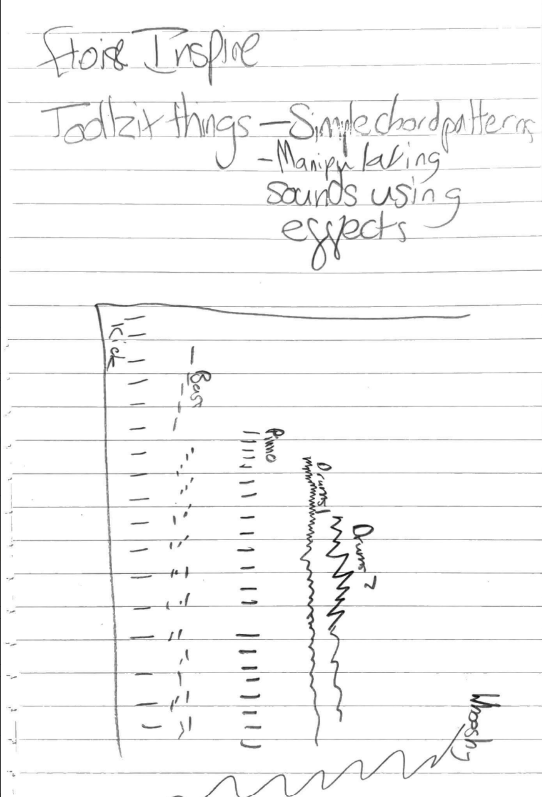 Inspire
Toolkit things - Simple chord patterns
- Manipulating
sounds using
effects
Kick
Bass
Piano
Drums 1
Drums 2
Whoosh